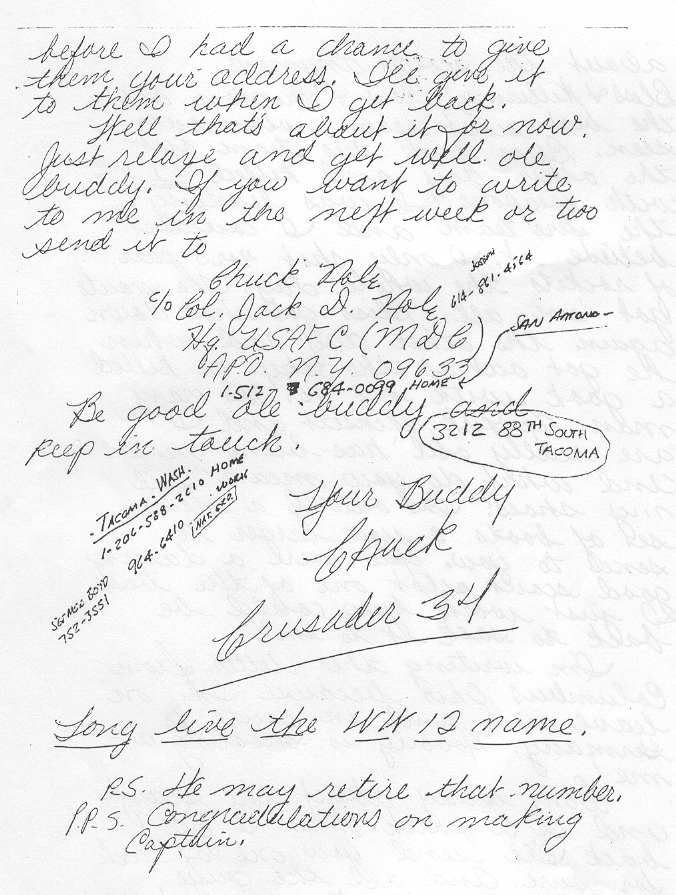 before I had a chance to give
them your address. I'll give it
to them when I get back.
Well that's about it for now.
Just relaye and get well ole
buddy. If you want to write
to me in the neft week or too
send it to
Chuck Nole
c/o Col. Jack D. Nole
614-861-4564
Hq. USAFC (MDC)
SAN ANTONO-
APO. N.Y. 09633
1-512 684-0099 HOME
Be good ole buddy and
keep in touch.
3212 88TH SOUTH
TACOMA
- TACOMA - WASH.
1-206-588-2610 HOME
964-6410 WORK
Your Buddy
Chuck
752-3551
Crusader 34
Long live the WW 12 name.
P.S. He may retire that number.
P.P.S. Congradulations on making
Captain.